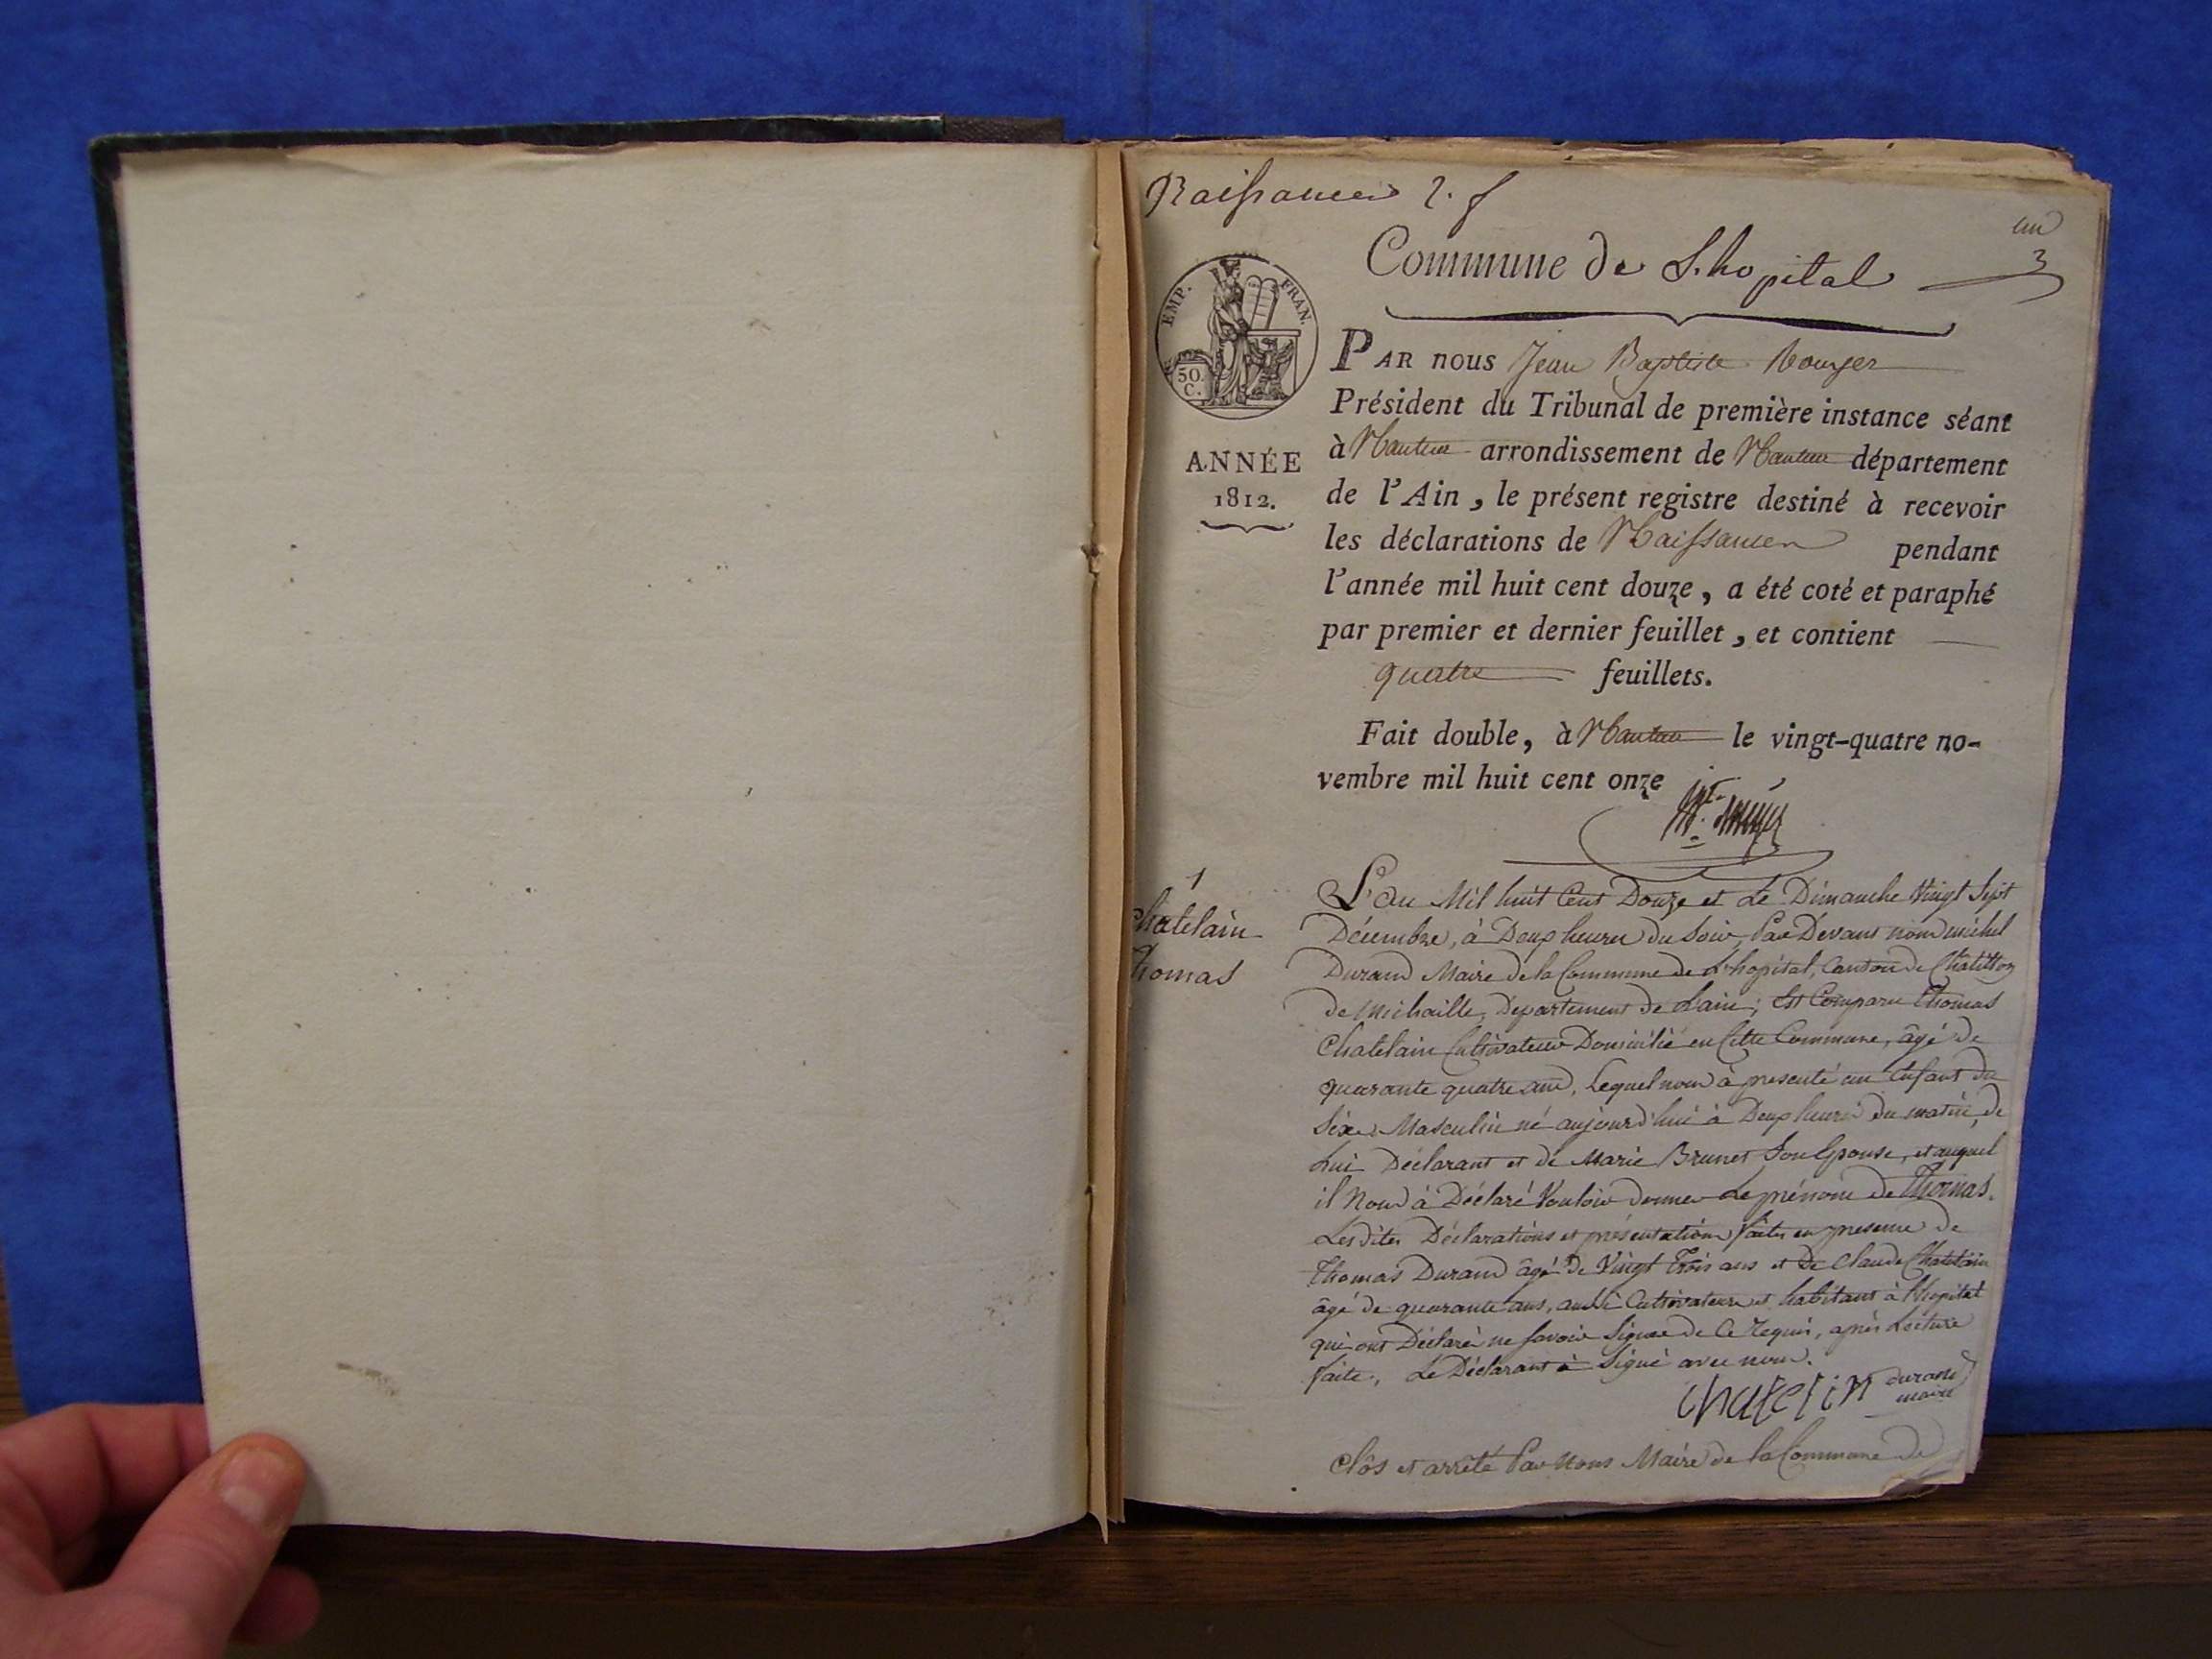 Naissances 2. f
un
3
Commune de L'hopital
EMP. FRAN.
50.
C.
ANNÉE
1812.
PAR nous Jean Baptiste
Président du Tribunal de première instance séant
à Nantua arrondissement de Nantua département
de l'Ain, le présent registre destiné à recevoir
les déclarations de Naissances pendant
l'année mil huit cent douze, a été coté et paraphé
par premier et dernier feuillet, et contient
quatre feuillets.
Fait double, à Nantua le vingt-quatre no-
vembre mil huit cent onze
1
Chatelain
Thomas
L'an Mil huit Cent Douze et Le Dimanche Vingt Sept
Décembre, à Deux heures du Soir, Par Devant nous michel
Durand Maire de la Commune de L'hopital, Canton de Chatillon
de Michaille, Departement de L'ain; Est Comparu Thomas
Chatelain Cultivateur Domicilié en Cette Commune, âgé de
quarante quatre ans, Lequel nous à presenté un Enfant du
Séxe Masculin né aujourd'hui à Deux heures du matin, de
Lui Déclarant et de Marie Brunet Son Epouse, et auquel
il Nous à Déclaré Vouloir donner Le prénom de Thomas.
Les dites Déclarations et présentation faites en presence de
Thomas Durand âgé de Vingt Trois ans et De Claude Chatelain
âgé de quarante ans, aussi Cultivateurs et habitant à l'hopital
qui ont Déclaré ne Savoir Signer de Ce requis, après Lecture
faite, Le Déclarant à Signé avec nous.
Chatelin durand
maire
Clôs et arrêté Par Nous Maire de la Commune de